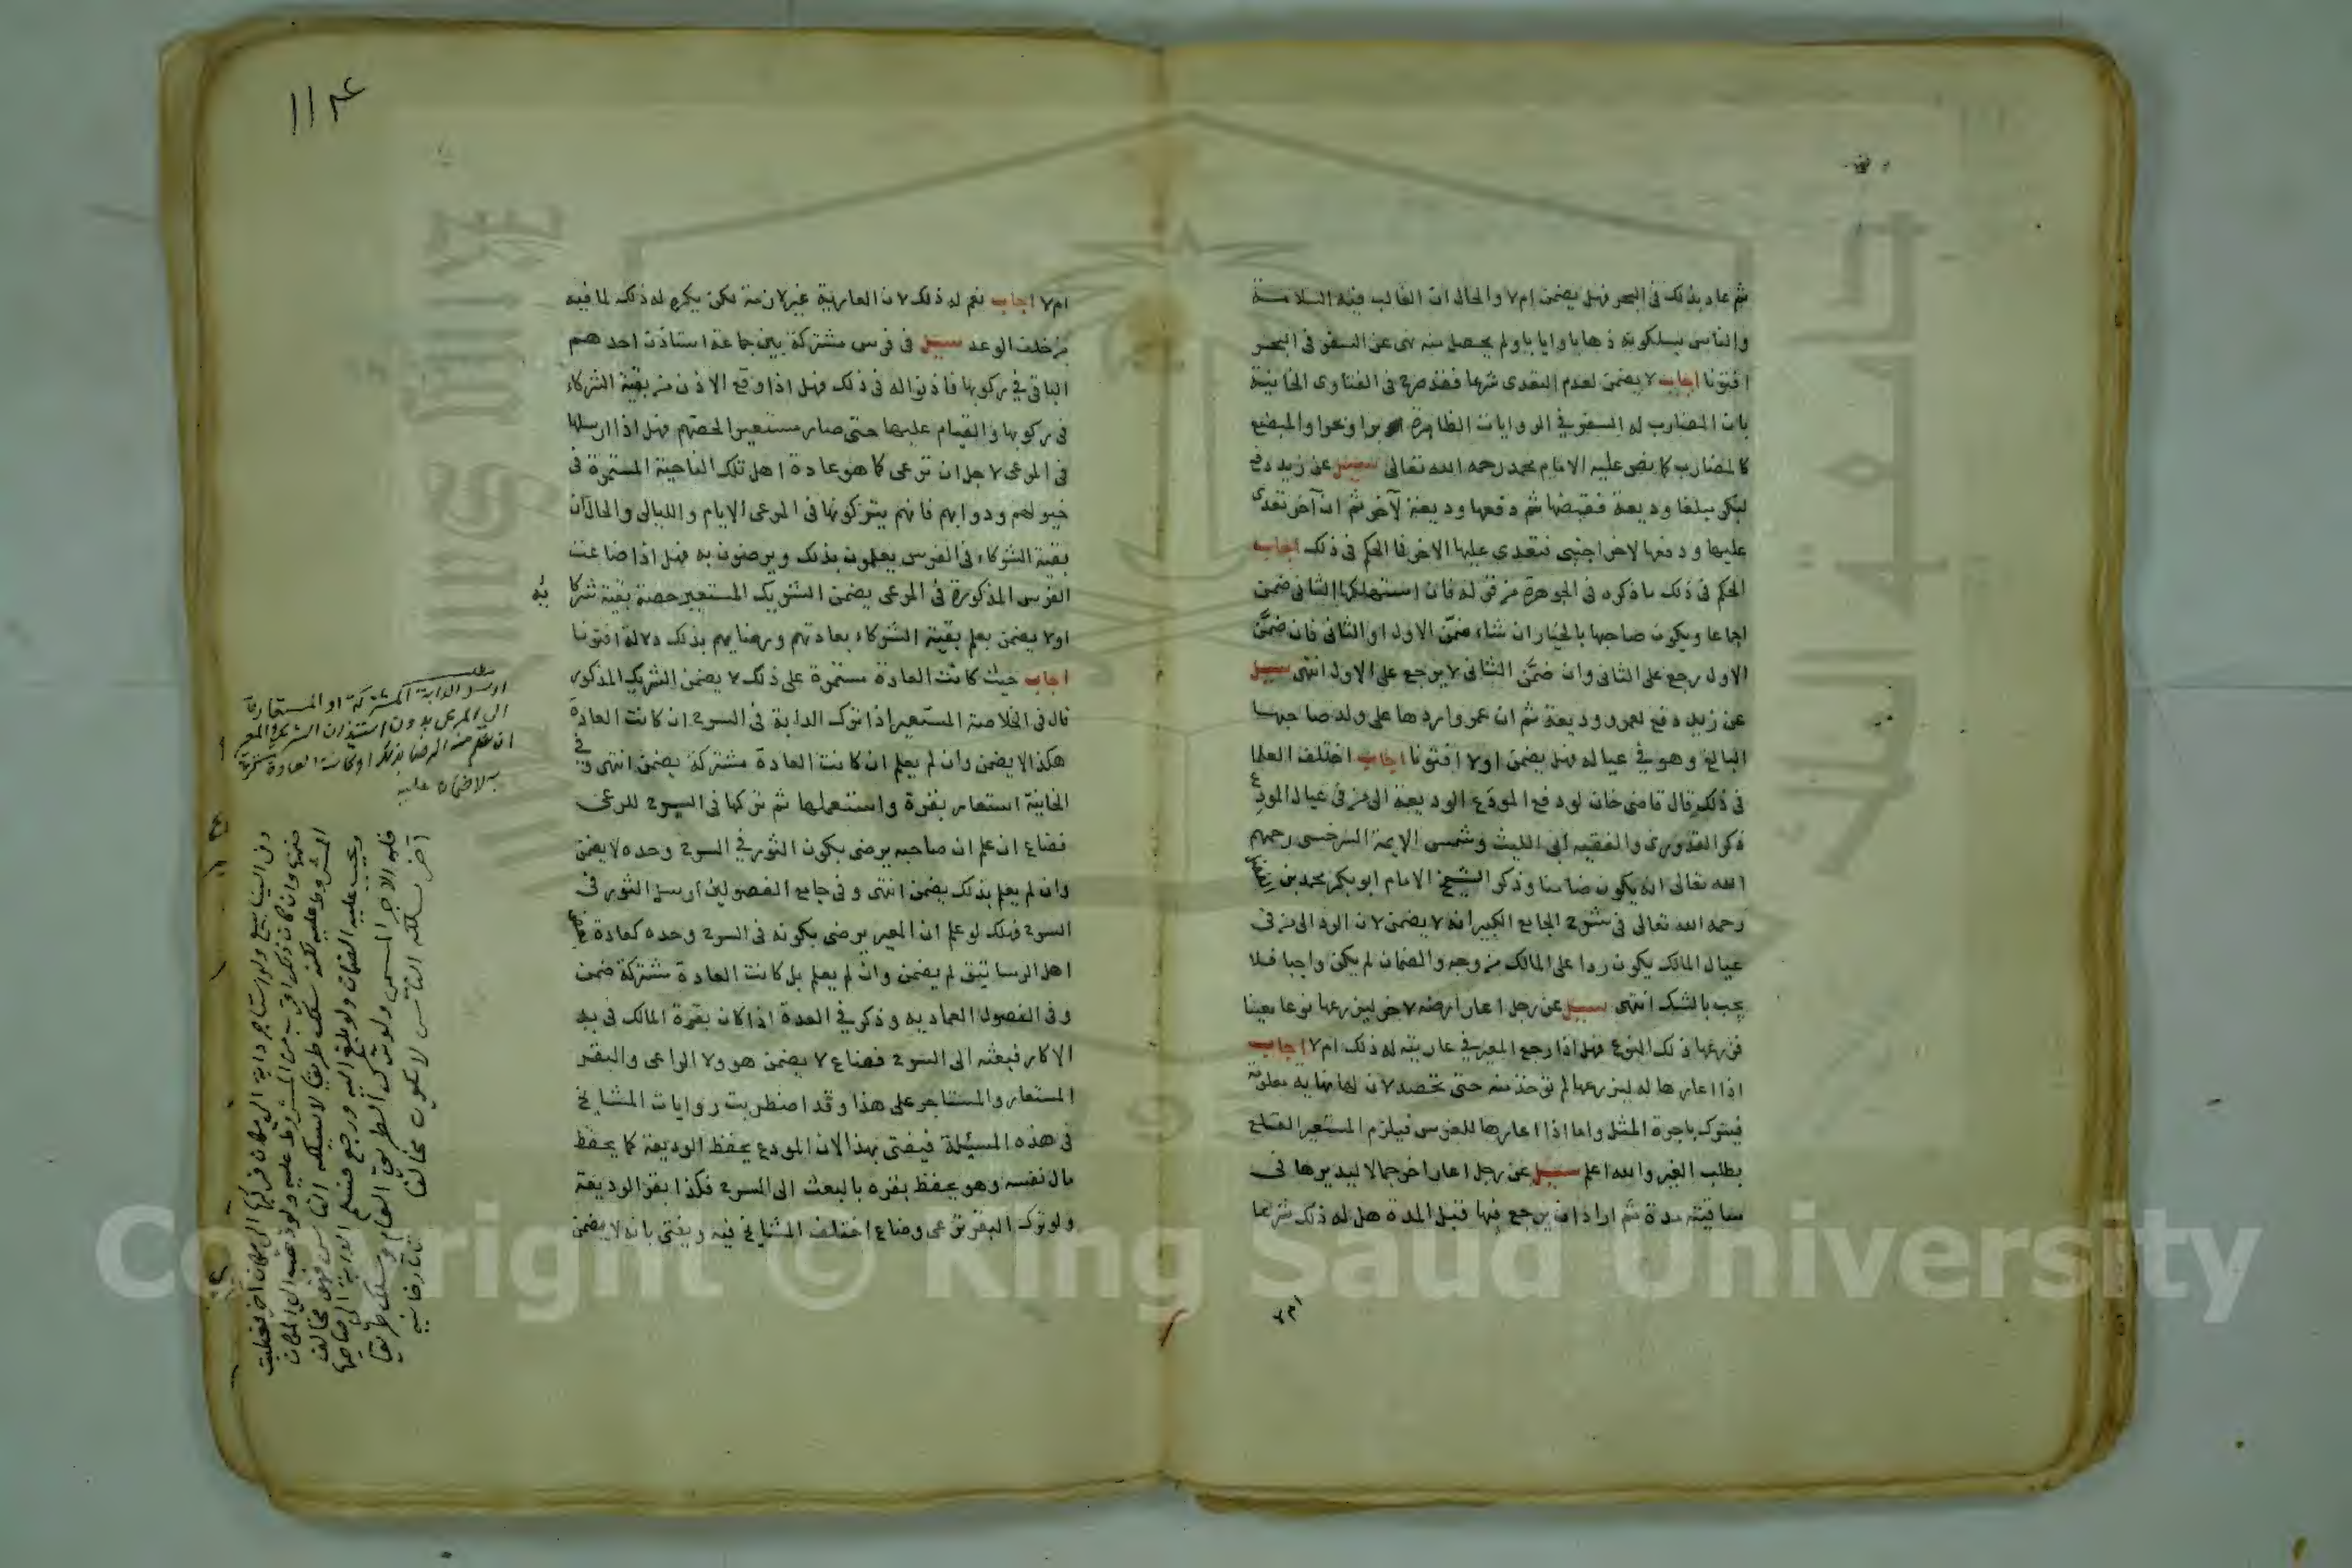 ثم عاد بذلك في البحر فهل يضمن ام لا والحال ان الغالب فيه السلامة
والناس يسلكونه ذهابا وايابا ولم يحصل منه نهى عن السفر في البحر
افتونا اجاب لا يضمن لعدم التعدى شرعا فقد صرح في الفتاوى الخانية
بان المضارب له السفر في الروايات الظاهرة برا وبحرا والمبضع
كالمضارب كما نص عليه الامام محمد رحمه الله تعالى سيل عن زيد دفع
لبكر مبلغا وديعة فقبضها ثم دفعها وديعة لآخر ثم ان آخر تعدى
عليها ودفعها لاخر اجنبى فتعدى عليها الاخر فما الحكم في ذلك اجاب
الحكم في ذلك ما ذكره في الجوهرة من قوله فان استهلكها الثانى ضمن
اجماعا ويكون صاحبها بالخيار ان شاء ضمّن الاول او الثانى فان ضمّن
الاول رجع على الثانى وان ضمّن الثانى لا يرجع على الاول انتهى سيل
عن زيد دفع لعمرو وديعة ثم ان عمروا ردها على ولد صاحبها
البالغ وهو في عياله فهل يضمن اولا افتونا اجاب اختلف العلما
في ذلك قال قاضى خان لو دفع المودَع الوديعة الى من في عيال المودِع
ذكر القدورى والفقيه ابى الليث وشمس الايمة السرخسى رحمهم
الله تعالى انه يكون ضامنا وذكر الشيخ الامام ابو بكر محمد بن
رحمه الله تعالى في شرح الجامع الكبير انه لا يضمن لان الرد الى من في
عيال المالك يكون ردا على المالك من وجه والضمان لم يكن واجبا فلا
يجب بالشك انتهى سيل عن رجل اعار ارضه لاخر ليزرعها نوعا معينا
فزرعها ذلك النوع فهل اذا رجع المعير في عاريته له ذلك ام لا اجاب
اذا اعارها له ليزرعها لم تؤخذ منه حتى تحصد لان لها نهاية معلومة
فيترك باجرة المثل واما اذا اعارها للغرس فيلزم المستعير القلع
بطلب المعير والله اعلم سيل عن رجل اعار اخر جمالا ليديرها في
ساقيته مدة ثم اراد ان يرجع فيها قبل المدة هل له ذلك شرعا
ام لا
١١٨٤
ام لا اجاب نعم له ذلك لان العارية غير لازمة لكن يكره له ذلك لما فيه
من خلف الوعد سيل في فرس مشتركة بين جماعة استاذن احدهم
الباقي في ركوبها فاذنوا له في ذلك فهل اذا وقع الاذن من بقية الشركاء
في ركوبها والقيام عليها حتى صار مستعيرا لحصتهم فهل اذا ارسلها
في المرعى لاجل ان ترعى كما هو عادة اهل تلك الناحية المستمرة في
خيولهم ودوابهم فانهم يتركونها في المرعى الايام والليالى والحال ان
بقية الشركاء في الفرس يعلمون بذلك ويرضون به فهل اذا ضاعت
الفرس المذكورة في المرعى يضمن الشريك المستعير حصة بقية شركا
يه
اولا يضمن بعلم بقية الشركاء بعادتهم ورضايهم بذلك دلالة افتونا
اجاب حيث كانت العادة مستمرة على ذلك لا يضمن الشريك المذكور
قال في الخلاصة المستعير اذا ترك الدابة في السرح ان كانت العادة
هكذا لا يضمن وان لم يعلم ان كانت العادة مشتركة يضمن انتهى وفي
الخانية استعار بقرة واستعملها ثم تركها في السرح للرعى
فضاع ان علم ان صاحبه يرضى بكون الثور في السرح وحده لا يضمن
وان لم يعلم بذلك يضمن انتهى وفي جامع الفصولين ارسل الثور في
السرح فهلك لو علم ان المعير يرضى بكونه في السرح وحده كعادة
اهل الرساتيق لم يضمن وان لم يعلم بل كانت العادة مشتركة ضمن
وفي الفصول العماديه وذكر في العدة اذا كان بقرة المالك في يد
الاكار فبعثه الى السرح فضاع لا يضمن هو ولا الراعى والبقر
المستعار والمستاجر على هذا وقد اضطربت روايات المشايخ
في هذه المسئلة فيفتى بهذا لان المودع يحفظ الوديعة كما يحفظ
مال نفسه وهو يحفظ بقره بالبعث الى السرح فكذا بقر الوديعة
ولو ترك البقر ترعى وضاع اختلف المشايخ فيه ويفتى بانه لا يضمن
مطلب
ارسل الدابة المشتركة او المستعارة
الى المرعى بدون استيذان الشريك او المعير
ان علم منه الرضا بذلك او كانت العادة مستمرة
لا ضمان عليه
وفي الينابيع ولو استاجر دابة الى مكان فركبها الى مكان اخر فعطبت
ضمنها وان كان ذلك اقرب من المشروط عليه ولو ذهب الى المكان
المشروط عليه لكنه سلك طريقا لا يسلكه الناس فهو مخالف
ويجب عليه الضمان ولو بلغ اليه ورجع فسلم الدابة الى صاحبها
فله الاجر المسمى ولو ترك الطريق العام وسلك طريقا
آخر يسلكه الناس لا يكون مخالفا تتارخانيه
Copyright © King Saud University
جامعة الملك سعود